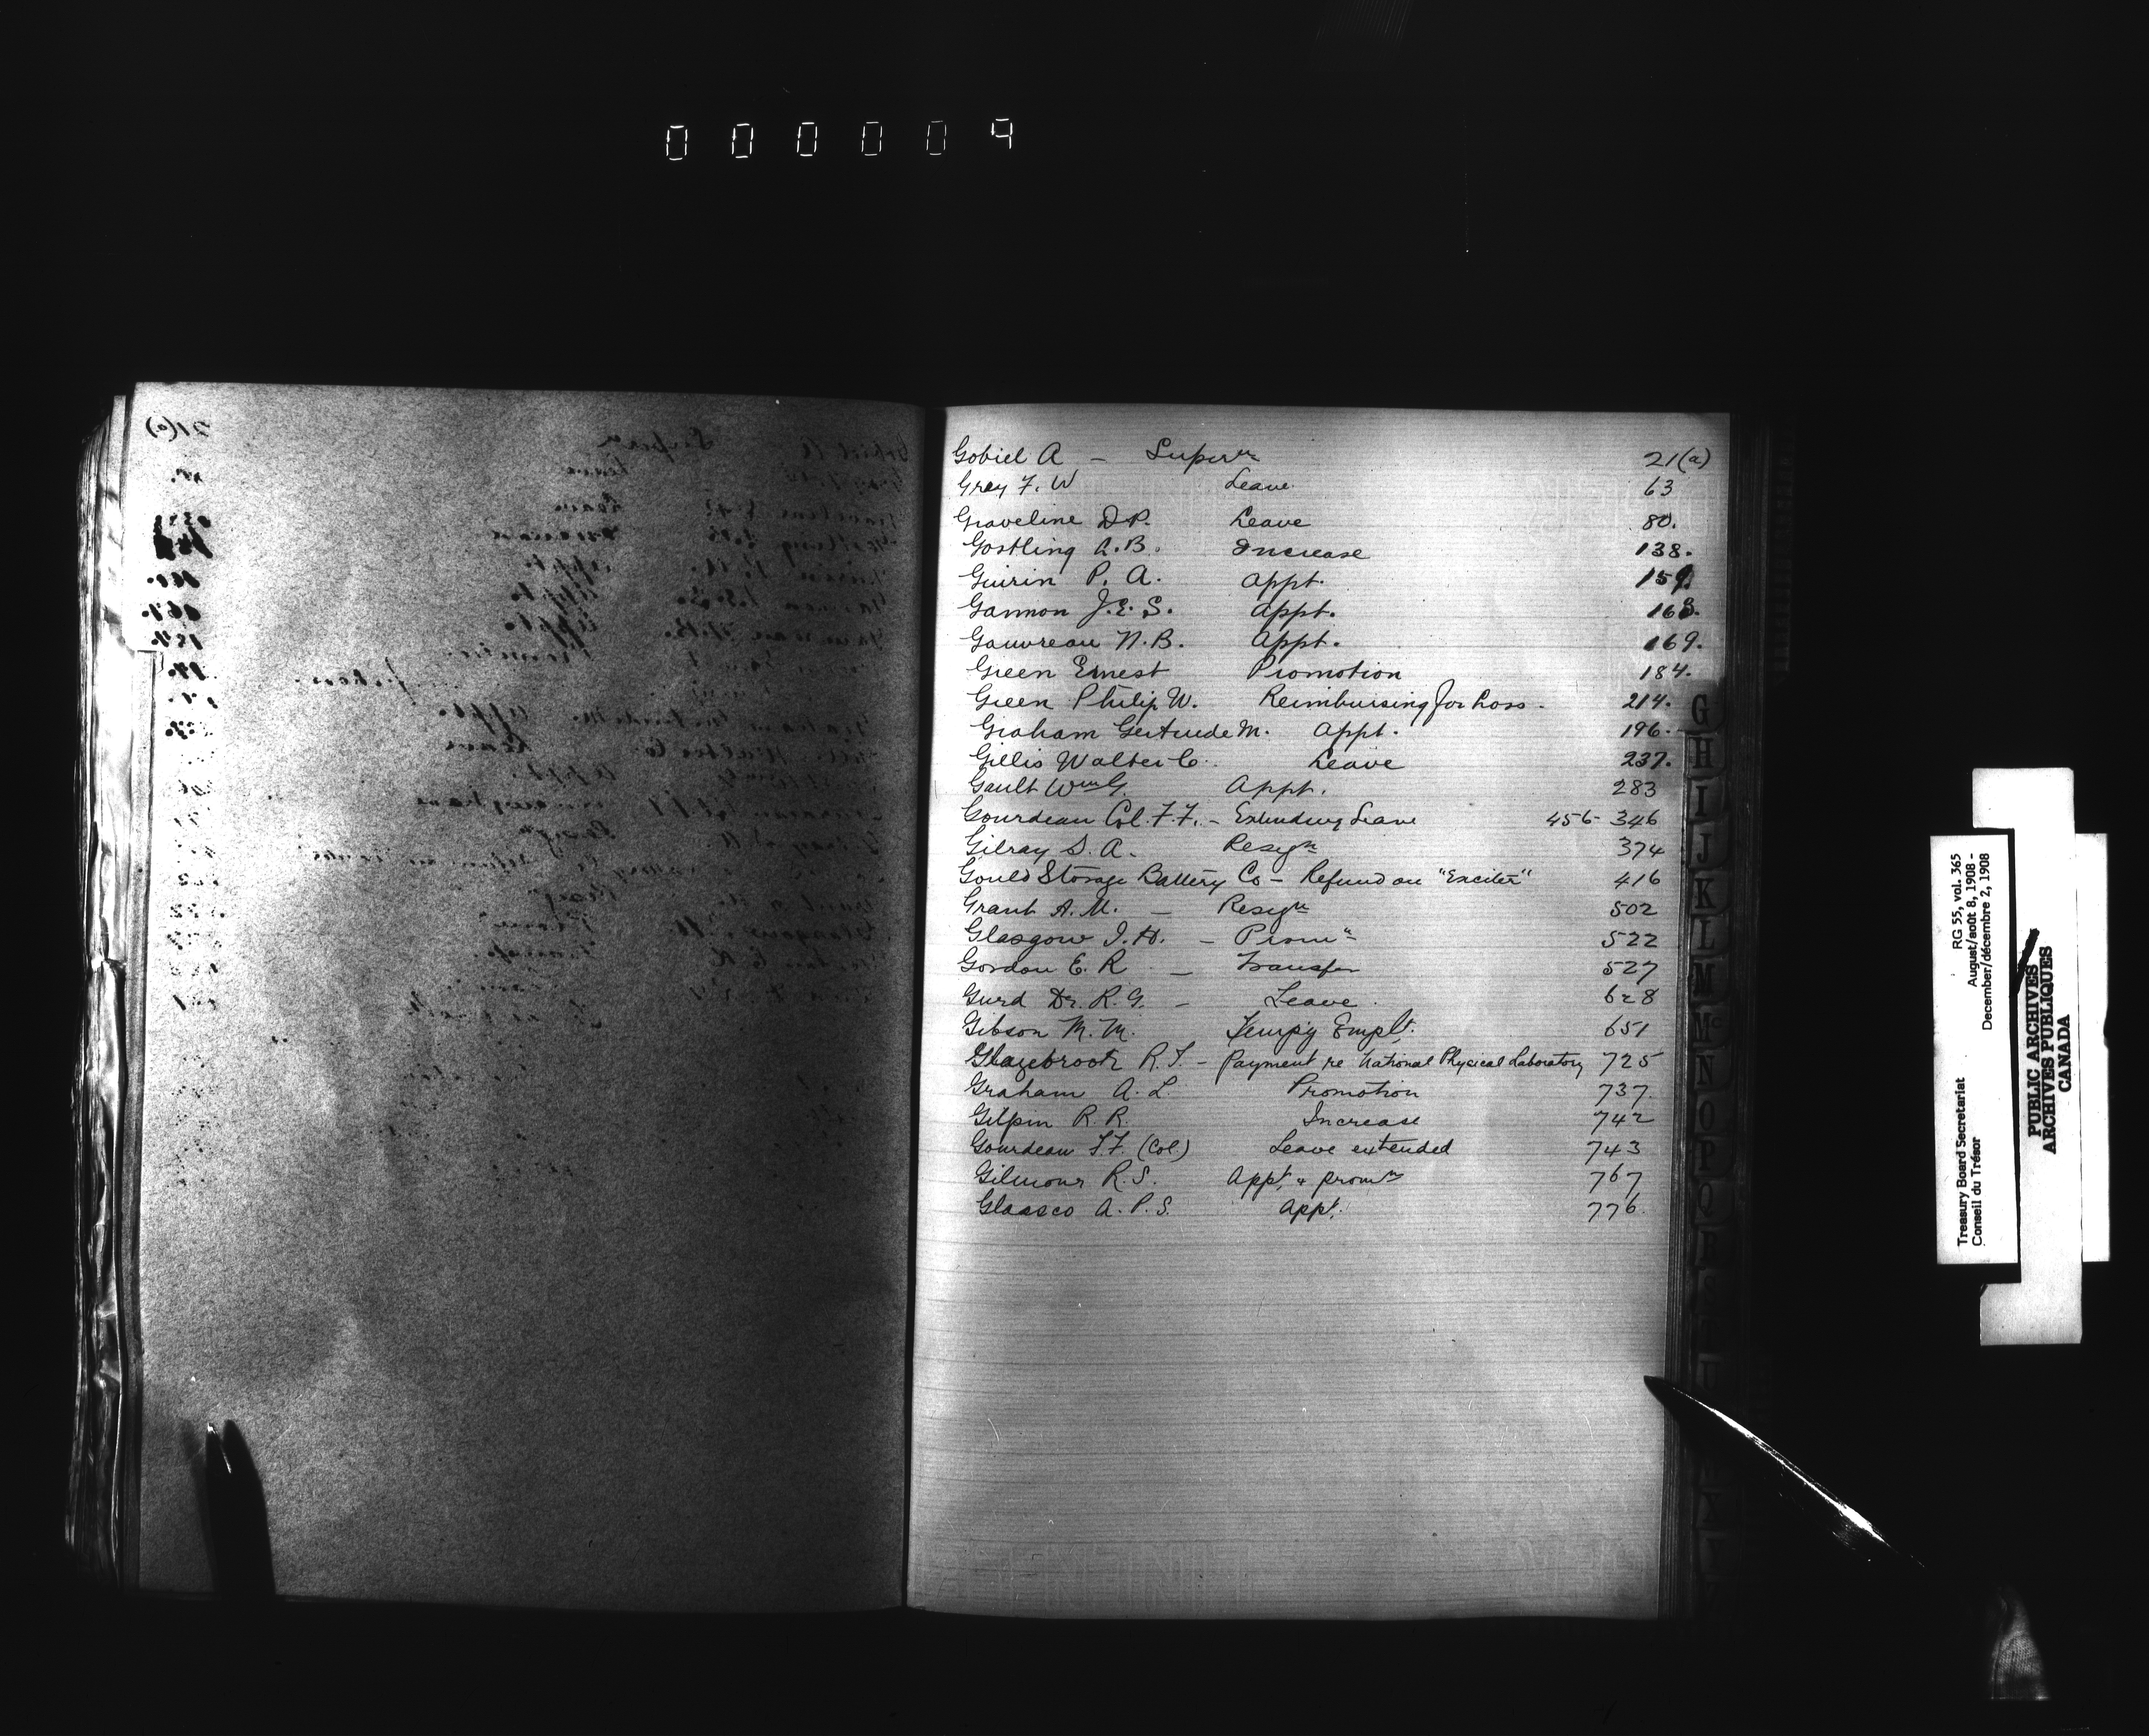 000009
Gobiel A – Superⁿ 21(a)
Grey F. W Leave 63
Graveline D.P. Leave 80.
Gostling A.B. Increase 138.
Guirin P. A. Appt. 159.
Gannon J.E.S. Appt. 163.
Gauvreau N.B. Appt. 169.
Green Ernest Promotion 184.
Green Philip W. Reimbursing for Loss. 214.
Graham Gertrude M. Appt. 196.
Gillis Walter C. Leave 237.
Gault Wm G. Appt. 283
Gourdeau Col. F.F. – Extending Leave 456- 346
Gilray S. A. Resigⁿ 374
Gould Storage Battery Co – Refund on "Exciter" 416
Grant A. M. – Resigⁿ 502
Glasgow J. H. – Promⁿ 522
Gordon E. R – Transfer 527
Gurd Dr. R. G. – Leave. 628
Gibson M. M. Temp'y Emplt. 651
Glazebrook R. T. – Payment re National Physical Laboratory 725
Graham A. L. Promotion 737
Gilpin R. R. Increase 742
Gourdeau F.F. (Col.) Leave extended 743
Gilmour R. S. Appt. & promⁿ 767
Glassco A. P. S. Appt. 776
G
H
I
J
K
L
M
Mc
N
O
P
Q
R
S
T
RG 55, vol. 365
August/août 8, 1908 -
December/décembre 2, 1908
Treasury Board Secretariat
Conseil du Trésor
PUBLIC ARCHIVES
ARCHIVES PUBLIQUES
CANADA